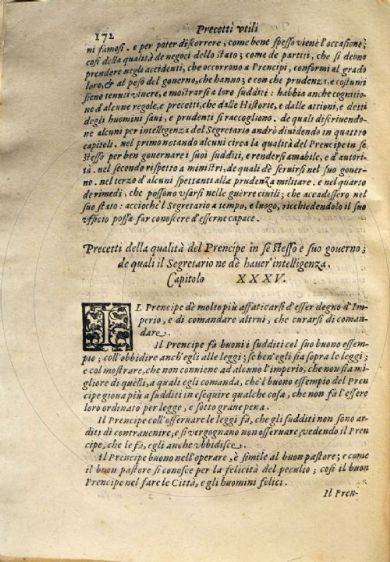 172 Precetti vtili
ni famosi. e per poter discorrere, come bene spesso viene l'occasione;
cosi della qualità de negoci dello stato; come de partiti, che si deono
prendere negli accidenti, che occorrono a Prencipi, conformi al grado
loro, & al peso del gouerno, che hanno; e con che prudenza, e costumi
sieno tenuti viuere, e mostrarsi a loro sudditi: habbia anche cognitio
ne d'alcune regole, e precetti, che dalle Historie, e dalle attioni, e detti
degli huomini saui, e prudenti si raccogliono. de quali discriuendo-
ne alcuni per intelligenza del Segretario andrò diuidendo in quattro
capitoli. nel primo notando alcuni circa la qualità del Prencipe in se
stesso per ben gouernare i suoi sudditi, e rendersi amabile, e d'autori-
tà. nel secondo rispetto a ministri, de quali dè seruirsi nel suo gouer-
no. nel terzo d'alcuni spettanti alla prudenza militare. e nel quarto
de rimedi, che possono vsarsi nelle guerre ciuili; che accadessero nel
suo stato: accioche'l Segretario a tempo, e luogo, richiedendolo il suo
vfficio possa far conoscere d'esserne capace.
Precetti della qualità del Prencipe in se stesso e suo gouerno;
de quali il Segretario ne dè hauer'intelligenza.
Capitolo XXXV.
IL Prencipe dè molto più affaticarsi d'esser degno d'Im-
perio, e di comandare altrui, che curarsi di coman-
dare.
Il Prencipe fà buoni i sudditi col suo buono essem-
pio; coll'obbidire anch'egli alle leggi; se ben'egli sia sopra le leggi;
e col mostrare, che non conuiene ad alcuno l'imperio, che non sia mi
gliore di quelli, a quali egli comanda, che'l buono essempio del Pren-
cipe gioua più a sudditi in esequire qualche cosa, che non fà l'esser
loro ordinato per legge, e sotto graue pena.
Il Prencipe coll'osseruare le leggi fà, che gli sudditi non sono ar-
diti di contrauenire, e si vergognano non osseruare vedendo il Pren
cipe, che le fà, egli anche vbbidisce.
Il Prencipe buono nell'operare, è simile al buon pastore; e come
il buon pastore si conosce per la felicità del peculio; cosi il buon
Prencipe nel fare le Città, e gli huomini felici.
Il Pren-